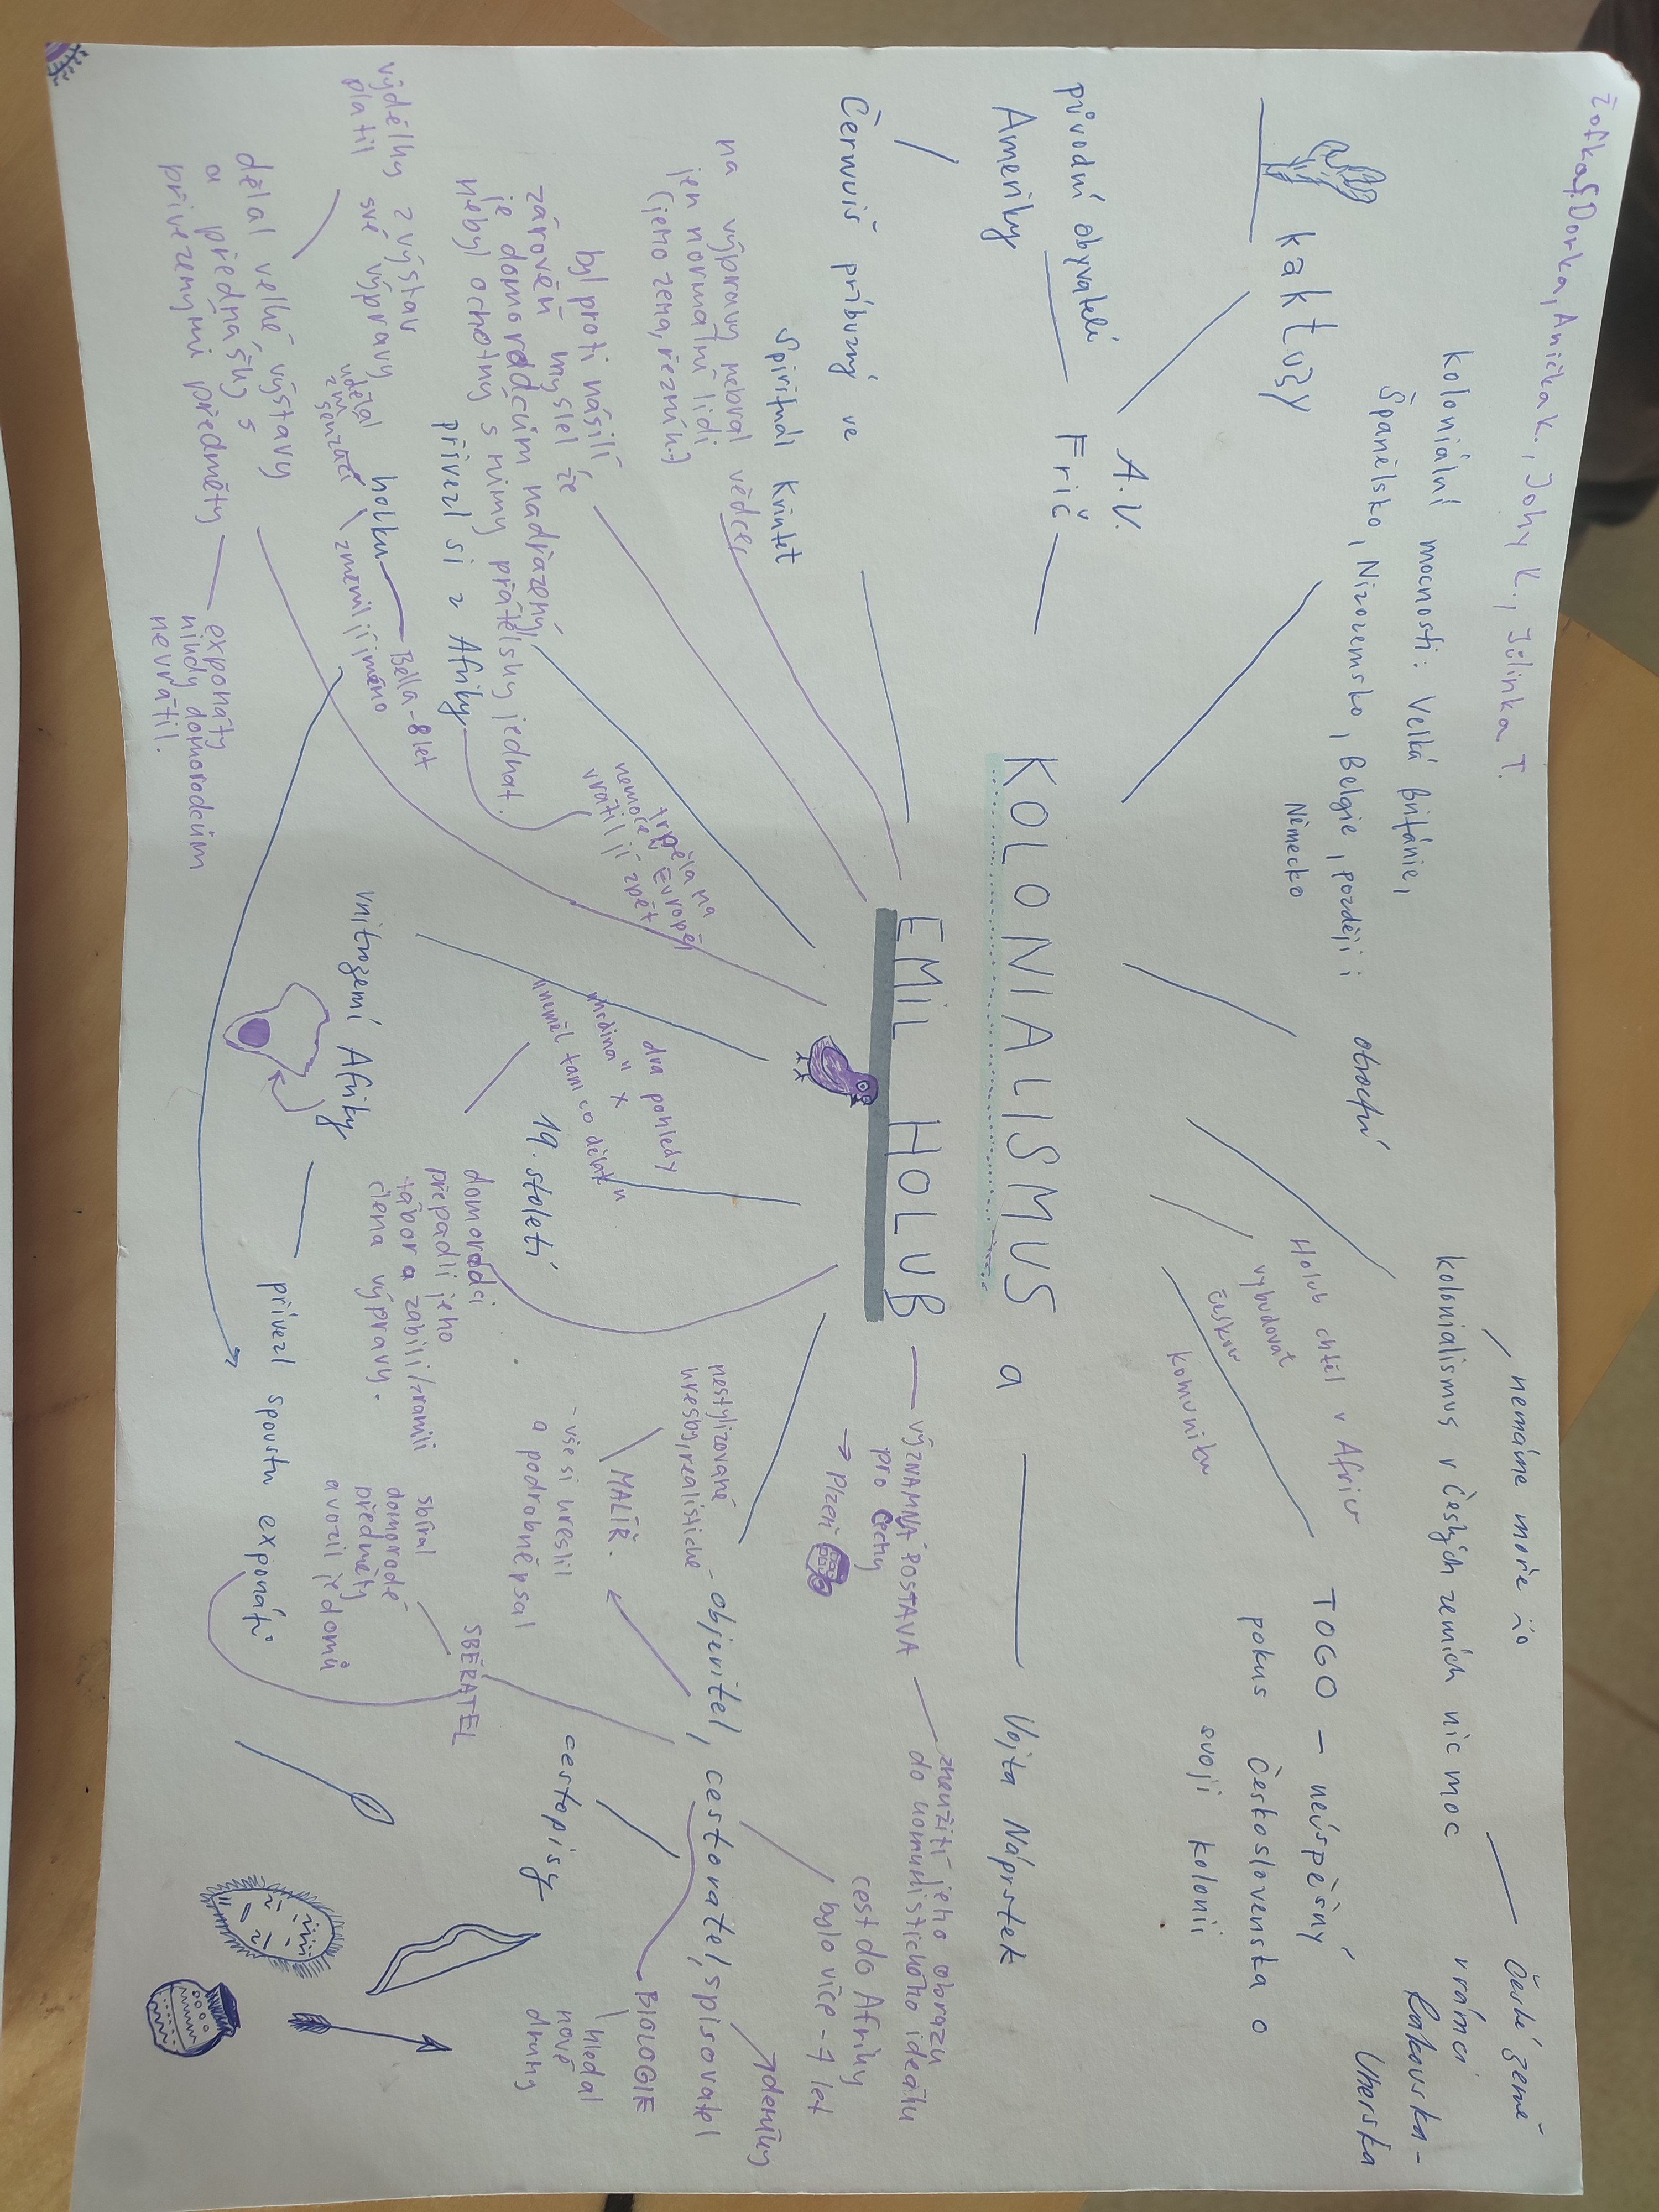 Žofka F. Dorka, Anička K., Johy K., Jólinka T.
kaktusy
původní obyvatelé
Ameriky
A.V.
Frič
Červuiš príbuzný ve
koloniální mocnosti: Velká Británie,
Španělsko, Nizozemsko, Belgie, později i
Německo
otroctví
nemáme moře žo
kolonialismus v českých zemích nic moc
české země
v rámci
Rakouska-
Uherska
Holub chtěl v Africe
vybudovat
českou
komunitu
TOGO - neúspěšný
pokus Československa o
svoji kolonii
KOLONIALISMUS a
EMIL HOLUB
Vojta Náprstek
VÝZNAMNÁ POSTAVA
pro Čechy
→ Plzeň
zneužití jeho obrazu
do komunistického ideálu
cest do Afriky
bylo více - 7 let
Spirituál Kvintet
na výpravy nebral vědce,
jen normální lidi
(jeho žena, řezník..)
byl proti násilí,
zároveň myslel že
je domorodcům nadřazený,
nebyl ochotný s nimy přátelsky jednat.
přivezl si z Afriky
holku
Bella - 8 let
změnil jí jméno
udělal
z ní
senzaci
trpěla na
nemoce v Evropě
vrátil jí zpět
výdělky z výstav
platil své výpravy
dělal velké výstavy
a přednášky s
přivezenymi předměty
exponáty
nikdy domorodcům
nevrátil.
dva pohledy
"hrdina" x
"neměl tam co dělat"
19. století
vnitrozemí Afriky
přivezl spoustu exponátů
domorodci
přepadli jeho
tábor a zabili/zranili
člena výpravy.
nestylizované
kresby, realistické
MALÍŘ.
- vše si kreslil
a podrobně psal
objevitel, cestovatel, spisovatel
deníky
cestopisy
BIOLOGIE
hledal
nové
druhy
SBĚRATEL
sbíral
domorodé
předměty
a vozil je domů